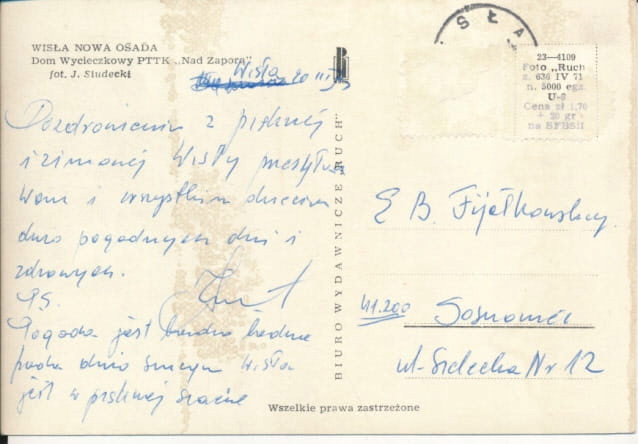 WISŁA NOWA OSADA
Dom Wycieczkowy PTTK „Nad Zaporą"
fot. J. Siudecki
Wisła
20 III
Pozdrowienia z pięknej
i zimowej Wisły przesyłam
Wam i wszystkim dzieciom
dużo pogodnych dni i
zdrowych.
PS.
Pogoda jest bardzo ładna
pada dużo śniegu Wisła
jest w pięknej szacie
BIURO WYDAWNICZE „RUCH"
SŁA
23—4109
Foto „Ruch
z. 636 IV 71
n. 5000 egz.
U-6
Cena zł 1,70
+ 20 gr
na SFBSiI
E B. Fijałkowscy
41.200 Sosnowiec
ul. Sielecka Nr 12
Wszelkie prawa zastrzeżone